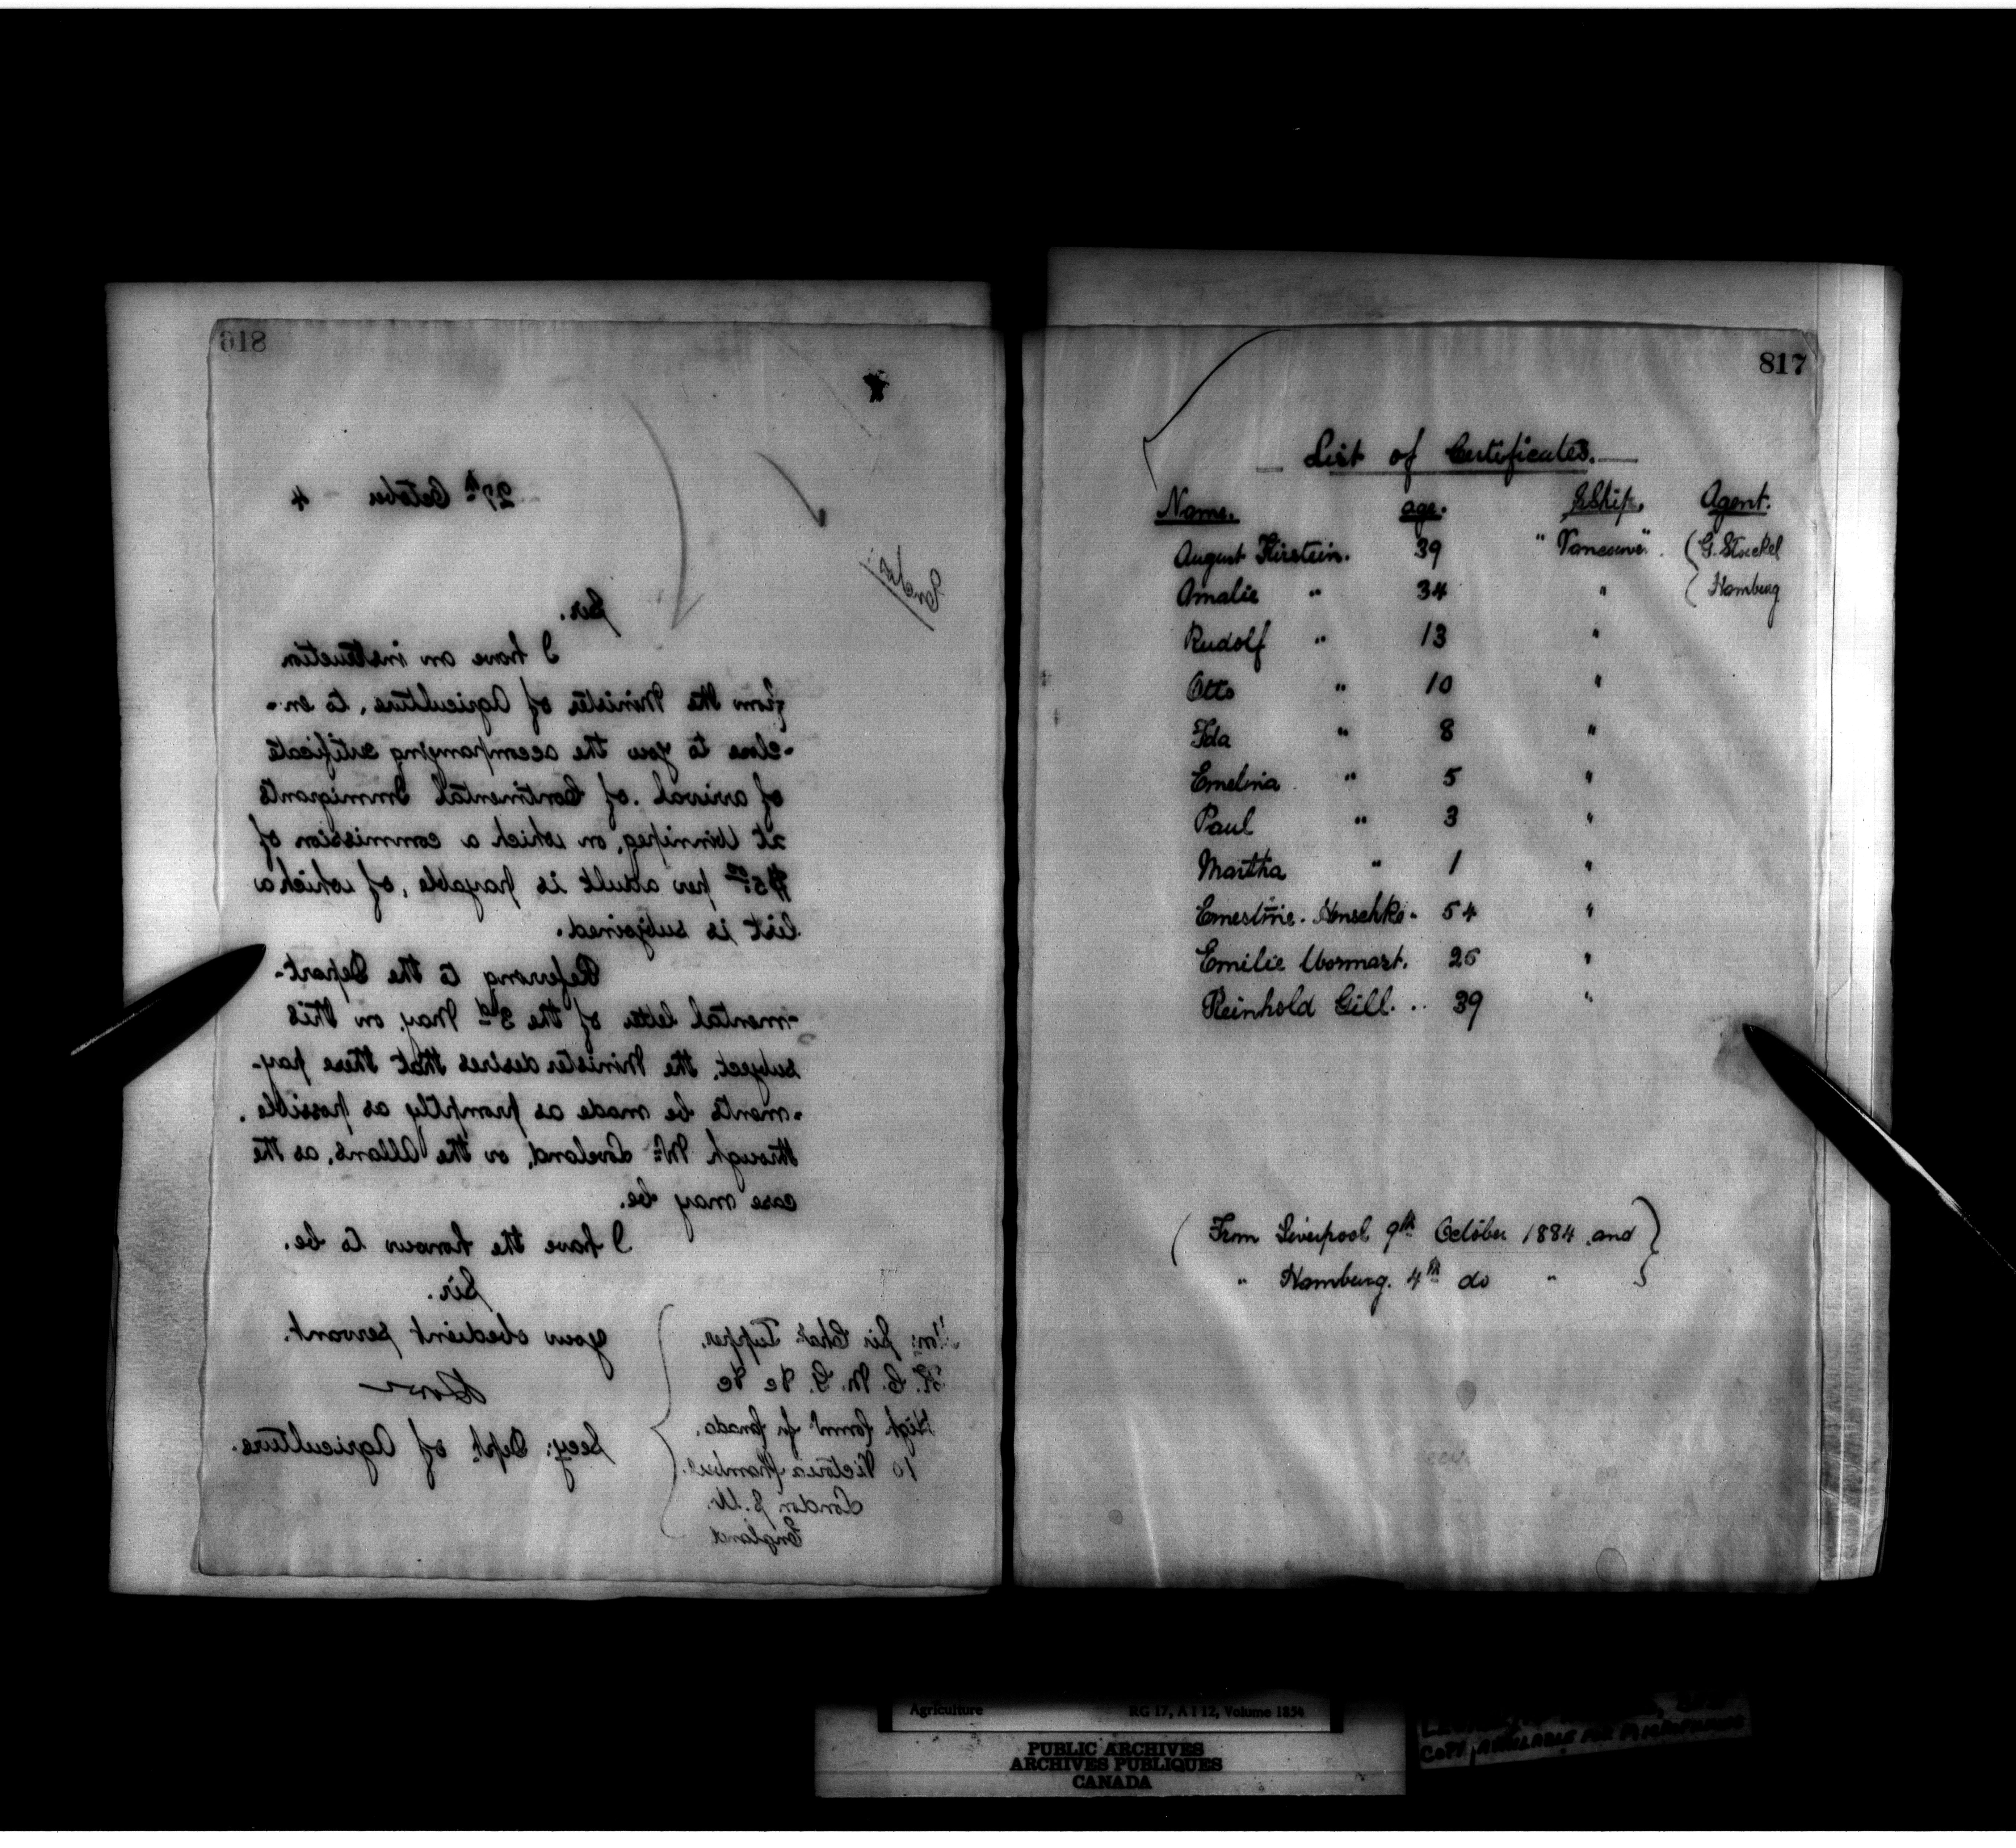 618
27th October 4
Encls:
Sir.
I have an instruction
from the Minister of Agriculture, to en-
-close to you the accompanying certificate
of arrival of Continental Immigrants
at Winnipeg, on which a commission of
$5.00 per adult is payable, of which a
list is subjoined.
Referring to the Depart-
-mental letter of the 3rd May, on this
subject, the Minister desires that these pay-
-ments be made as promptly as possible.
through Mr. Loveland, or the Allans, as the
case may be.
I have the honour to be.
Sir.
your obedient servant.
Secy: Dept of Agriculture.
Hon: Sir Chas Tupper.
K. C. M. G. &c &c
High Commr for Canada.
10 Victoria Chambers.
London S.W.
England
817
List of Certificates.
Name. age. SShip. Agent.
August Kirstein. 39 "Vancouver". (G. Stockel
Amalie " 34 " ( Hamburg
Rudolf " 13 "
Otto " 10 "
Ida " 8 "
Emelina " 5 "
Paul " 3 "
Martha " 1 "
Ernestine. Henschke. 54 "
Emilie 26 "
Reinhold Gill. .. 39 "
( From Liverpool 9th October 1884 and }
" Hamburg. 4th do " }
Agriculture RG 17, A I 12, Volume 1854
PUBLIC ARCHIVES
ARCHIVES PUBLIQUES
CANADA
COPY AVAILABLE FOR